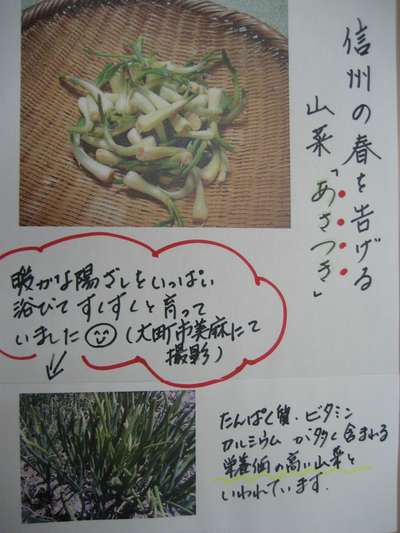 信州の春を告げる
山菜「あさつき」
暖かな陽ざしをいっぱい
浴びて すくすくと育って
いました (大町市美麻にて
撮影)
たんぱく質、ビタミン
カルシウム が多く含まれる
栄養価の高い山菜と
いわれています.